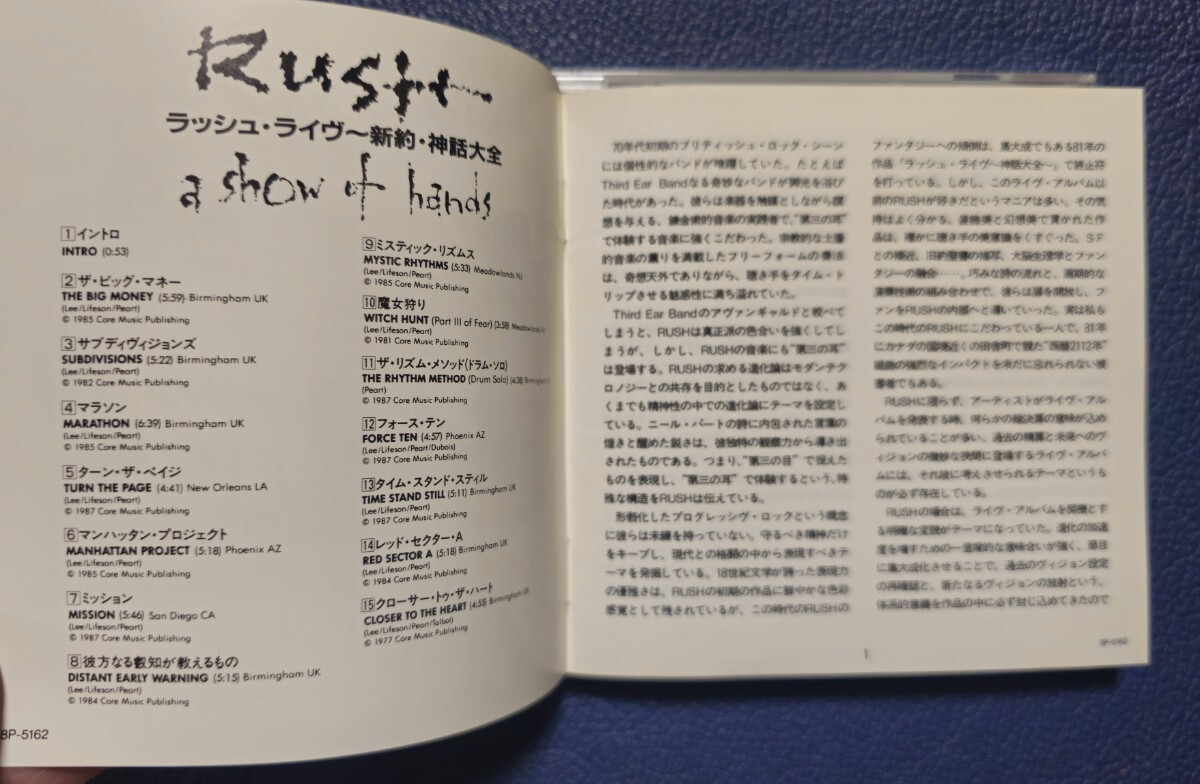 Rush
ラッシュ・ライヴ〜新約・神話大全
a show of hands
1 イントロ
INTRO (0:53)
2 ザ・ビッグ・マネー
THE BIG MONEY (5:59) Birmingham UK
(Lee/Lifeson/Peart)
© 1985 Core Music Publishing
3 サブディヴィジョンズ
SUBDIVISIONS (5:22) Birmingham UK
(Lee/Lifeson/Peart)
© 1982 Core Music Publishing
4 マラソン
MARATHON (6:39) Birmingham UK
(Lee/Lifeson/Peart)
© 1985 Core Music Publishing
5 ターン・ザ・ペイジ
TURN THE PAGE (4:41) New Orleans LA
(Lee/Lifeson/Peart)
© 1987 Core Music Publishing
6 マンハッタン・プロジェクト
MANHATTAN PROJECT (5:18) Phoenix AZ
(Lee/Lifeson/Peart)
© 1985 Core Music Publishing
7 ミッション
MISSION (5:46) San Diego CA
(Lee/Lifeson/Peart)
© 1987 Core Music Publishing
8 彼方なる叡知が教えるもの
DISTANT EARLY WARNING (5:15) Birmingham UK
(Lee/Lifeson/Peart)
© 1984 Core Music Publishing
8P-5162
9 ミスティック・リズムス
MYSTIC RHYTHMS (5:33) Meadowlands NJ
(Lee/Lifeson/Peart)
© 1985 Core Music Publishing
10 魔女狩り
WITCH HUNT (Part III of Fear) (3:58) Meadowlands NJ
(Lee/Lifeson/Peart)
© 1981 Core Music Publishing
11 ザ・リズム・メソッド(ドラム・ソロ)
THE RHYTHM METHOD (Drum Solo) (4:38) Birmingham UK
(Peart)
© 1987 Core Music Publishing
12 フォース・テン
FORCE TEN (4:57) Phoenix AZ
(Lee/Lifeson/Peart/Dubois)
© 1987 Core Music Publishing
13 タイム・スタンド・スティル
TIME STAND STILL (5:11) Birmingham UK
(Lee/Lifeson/Peart)
© 1987 Core Music Publishing
14 レッド・セクター・A
RED SECTOR A (5:18) Birmingham UK
(Lee/Lifeson/Peart)
© 1984 Core Music Publishing
15 クローサー・トゥ・ザ・ハート
CLOSER TO THE HEART (4:55) Birmingham UK
(Lee/Lifeson/Peart/Talbot)
© 1977 Core Music Publishing
70年代初期のブリティッシュ・ロック・シーン
には個性的なバンドが喧躁していた。たとえば
Third Ear Bandなる奇妙なバンドが脚光を浴び
た時代があった。彼らは楽器を触媒としながら瞑
想を与える、錬金術的音楽の実践者で、“第三の耳”
で体験する音楽に強くこだわった。宗教的な土着
的音楽の薫りを満載したフリーフォームの奏法
は、奇想天外でありながら、聴き手をタイム・ト
リップさせる魅惑性に満ち溢れていた。
Third Ear Bandのアヴァンギャルドと較べて
しまうと、RUSHは真正派の色合いを強くしてし
まうが、しかし、RUSHの音楽にも“第三の耳”
は登場する。RUSHの求める進化論はモダンテク
ノロジーとの共存を目的としたものではなく、あ
くまでも精神性の中での進化論にテーマを設定し
ている。ニール・パートの詩に内包された言葉の
煌きと醒めた鋭さは、彼独特の観察力から導き出
されたものである。つまり、“第三の目”で捉えた
ものを表現し、“第三の耳”で体験するという、特
殊な構造をRUSHは伝えている。
形骸化したプログレッシヴ・ロックという概念
に彼らは未練を持っていない。守るべき精神だけ
をキープし、現代との格闘の中から表現すべきテ
ーマを発掘している。18世紀文学が誇った表現力
の優雅さは、RUSHの初期の作品に鮮やかな色彩
感覚として残されているが、この時代のRUSHの
1
ファンタジーへの傾倒は、集大成でもある81年の
作品「ラッシュ・ライヴ〜神話大全〜」で終止符
を打っている。しかし、このライヴ・アルバム以
前のRUSHが好きだというマニアは多い。その気
持はよく分かる。 と幻想美で貫かれた作
品は、確かに聴き手の美意識をくすぐった。SF
との接近、旧約聖書の描写、大脳生理学とファン
タジーの融合……。巧みな詩の流れと、画期的な
演奏技術の組み合わせで、彼らは扉を開放し、フ
ァンをRUSHの内部へと導いていった。実は私も
この時代のRUSHにこだわっている一人で、81年
にカナダの国境近くの田舎町で観た“西暦2112年”
組曲の強烈なインパクトを未だに忘れられない被
害者でもある。
RUSHに限らず、アーティストがライヴ・アル
バムを発表する時、何らかの総決算の意味が込め
られていることが多い。過去の精算と未来へのヴ
ィジョンの微妙な狭間に登場するライヴ・アルバ
ムには、それ故に考えさせられるテーマというも
のが必ず存在している。
RUSHの場合は、ライヴ・アルバムを契機とす
る明確な変貌がテーマになっていた。進化の加速
度を増すための一里塚的な意味合いが強く、節目
に集大成化させることで、過去のヴィジョン設定
の再確認と、新たなるヴィジョンの放射という、
体系的意識を作品の中に必ず封じ込めてきたので
8P-5162